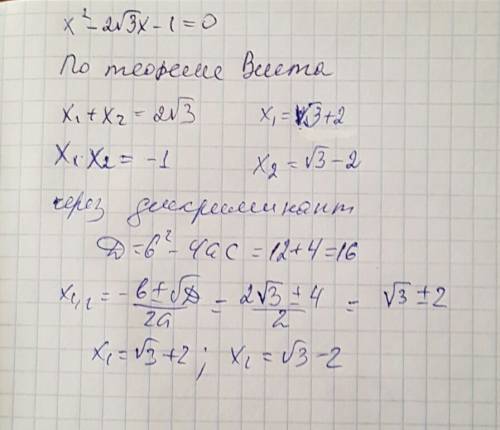 x² - 2√3x - 1 = 0
По теореме Виета
x₁ + x₂ = 2√3 x₁ = √3 + 2
x₁ · x₂ = -1 x₂ = √3 - 2
через дискриминант
D = b² - 4ac = 12 + 4 = 16
x₁,₂ = (-b ± √D)/2a = (2√3 ± 4)/2 = √3 ± 2
x₁ = √3 + 2 ; x₁ = √3 - 2